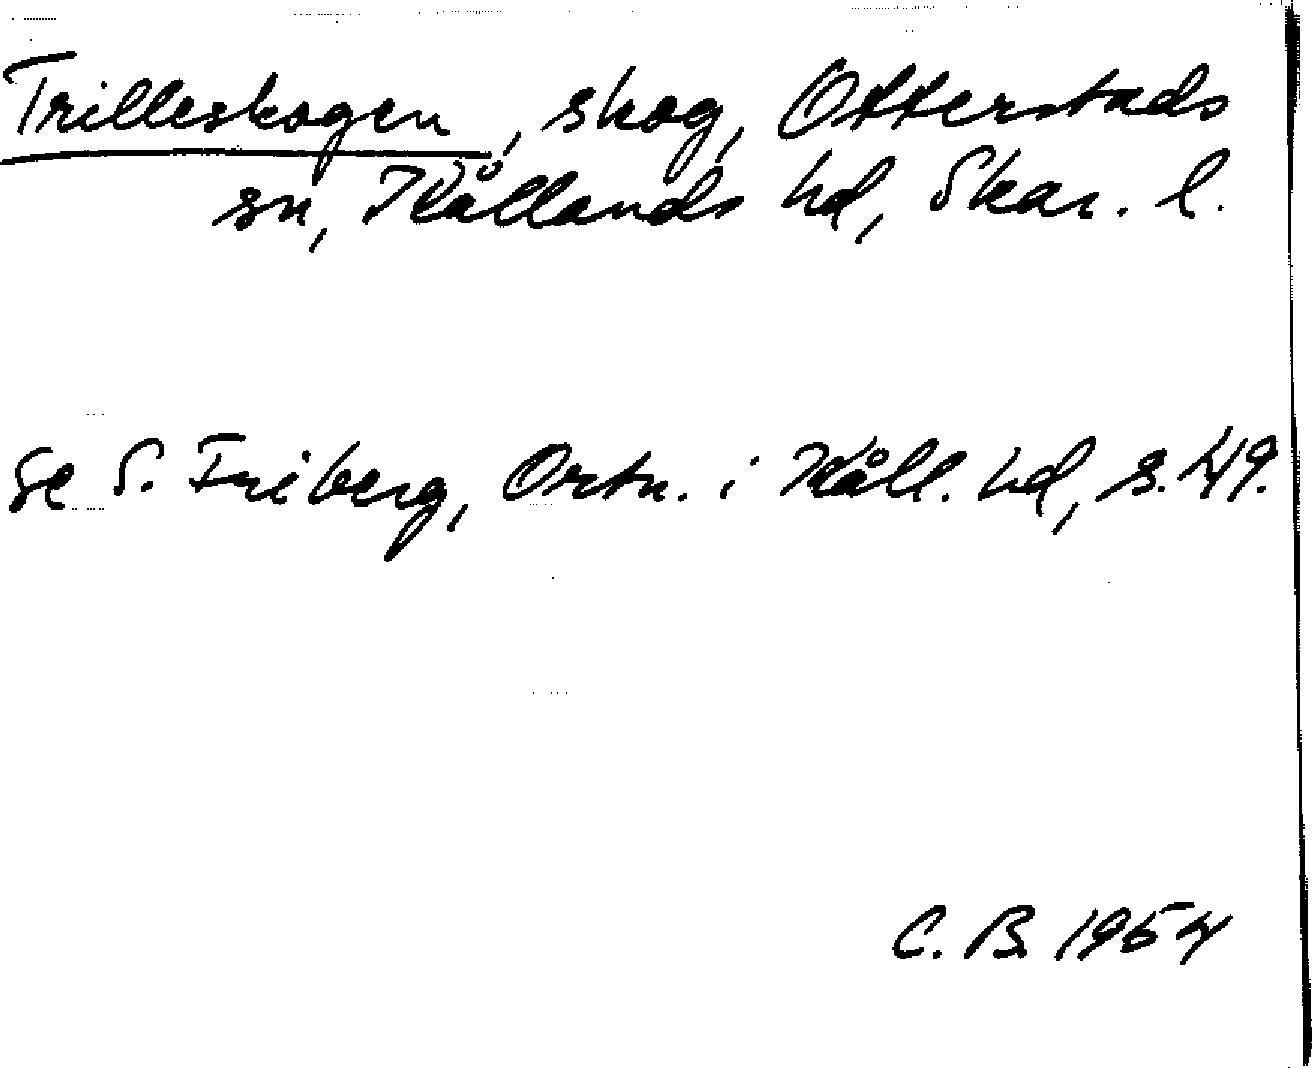 Trilleskogen, skog, Otterstads
sn, Kållands hd, Skar. l.
Se S. Friberg, Ortn. i Kåll. hd, s. 49.
C. B. 1954